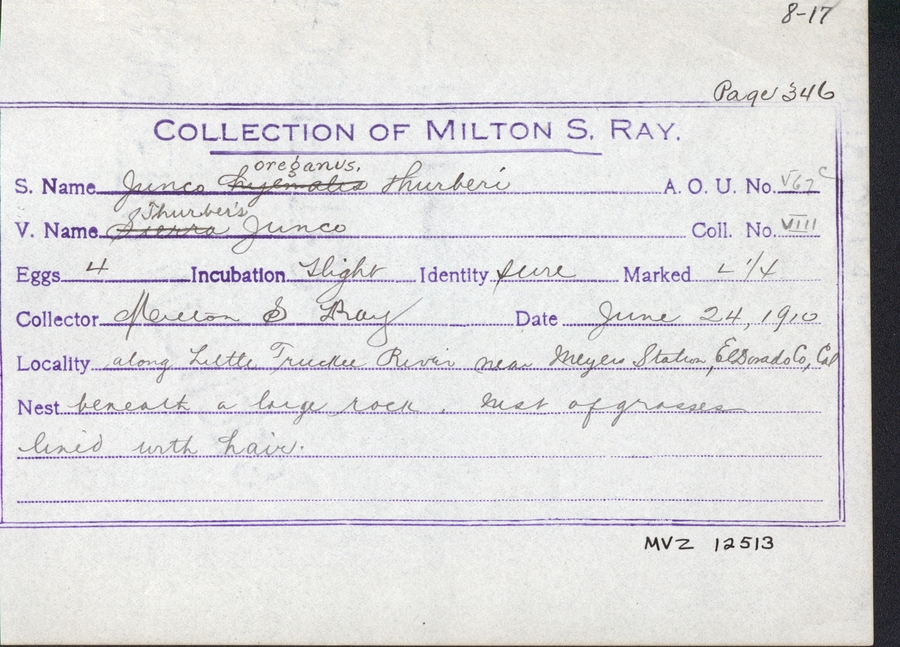 8-17
Page 346
COLLECTION OF MILTON S. RAY.
oreganus.
S. Name Junco hyemalis thurberi A. O. U. No. 567c
Thurber's
V. Name Sierra Junco Coll. No. VIII
Eggs 4 Incubation Slight Identity sure Marked 1/4
Collector Milton S Ray Date June 24, 1910
Locality along Little Truckee River near Meyers Station, El Dorado Co, Cal
Nest beneath a large rock. nest of grasses
lined with hair.
MVZ 12513